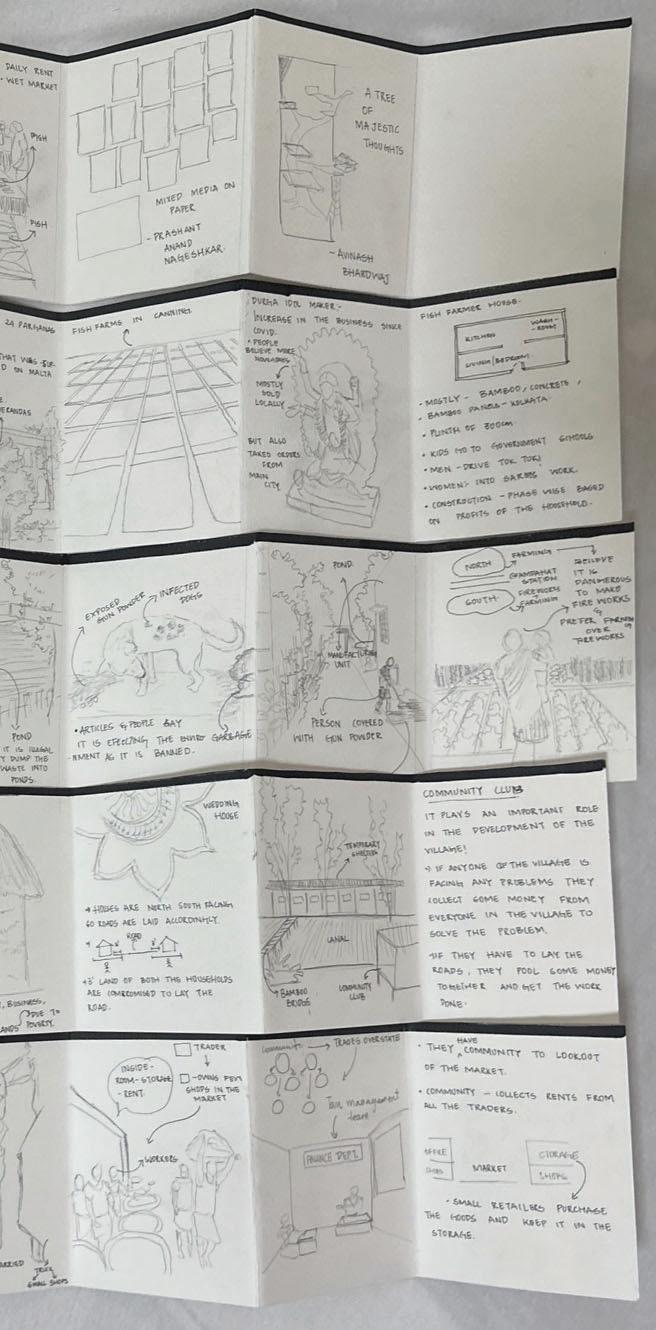 DAILY RENT
• WET MARKET
FISH
FISH
MIXED MEDIA ON
PAPER
- PRASHANT
ANAND
NAGESHKAR.
A TREE
OF
MAJESTIC
THOUGHTS
- AVINASH
BHARDWAJ
24 PARGANAS
THAT WAS
D ON MALTA
ERANDAS
FISH FARMS IN CANNING.
DURGA IDOL MAKER:-
INCREASE IN THE BUSINESS SINCE
COVID.
• PEOPLE
BELIEVE MORE
MOSTLY
SOLD
LOCALLY
BUT ALSO
TAKES ORDERS
FROM
MAIN
CITY.
FISH FARMER HOUSE:-
KITCHEN
WASH-
ROOM
LIVING/BEDROOM
• MOSTLY - BAMBOO, CONCRETE,
• BAMBOO PANELS - KOLKATA.
• PLINTH OF 300cm
• KIDS GO TO GOVERNMENT SCHOOLS
• MEN - DRIVE TOK TOK!
• WOMEN - INTO SAREES WORK.
• CONSTRUCTION - PHASE WISE BASED
ON PROFITS OF THE HOUSEHOLD.
POND
IT IS ILLEGAL
Y DUMP THE
WASTE INTO
PONDS.
EXPOSED
GUN POWDER
INFECTED
DOGS
• ARTICLES & PEOPLE SAY
IT IS EFFECTING THE ENVIRO GARBAGE
NMENT AS IT IS BANNED.
POND
MANUFACTURING
UNIT
PERSON COVERED
WITH GUN POWDER
NORTH
FARMING
CHAMPAHAT
STATION
SOUTH
FIREWORK
FARMING
BELIEVE
IT IS
DANGEROUS
TO MAKE
FIRE WORKS
&
PREFER FARMING
OVER
FIREWORKS
Y, BUSINESS,
DUE TO
LANDS POVERTY.
WEDDING
HOUSE
→ HOUSES ARE NORTH SOUTH FACING
SO ROADS ARE LAID ACCORDINGLY.
ROAD
3'
3'
→ 3' LAND OF BOTH THE HOUSEHOLDS
ARE COMPROMISED TO LAY THE
ROAD.
TEMPORARY
SHELTERS
CANAL
BAMBOO
BRIDGE
COMMUNITY
CLUB
COMMUNITY CLUB
IT PLAYS AN IMPORTANT ROLE
IN THE DEVELOPMENT OF THE
VILLAGE!
→ IF ANYONE OF THE VILLAGE IS
FACING ANY PROBLEMS THEY
COLLECT SOME MONEY FROM
EVERYONE IN THE VILLAGE TO
SOLVE THE PROBLEM.
→ IF THEY HAVE TO LAY THE
ROADS, THEY POOL SOME MONEY
TOGETHER AND GET THE WORK
DONE.
ARRIED
TRUCK
SMALL SHOPS
INSIDE -
ROOM - STORAGE
- RENT.
TRADER
- OWNS FEW
SHOPS IN THE
MARKET
WORKERS
Community → TRADES OVERSTATE
Tax management
team
FINANCE DEPT.
• THEY HAVE COMMUNITY TO LOOKOUT
OF THE MARKET.
• COMMUNITY - COLLECTS RENTS FROM
ALL THE TRADERS.
OFFICE
SHOPS
MARKET
STORAGE
SHOPS
• SMALL RETAILERS PURCHASE
THE GOODS AND KEEP IT IN THE
STORAGE.